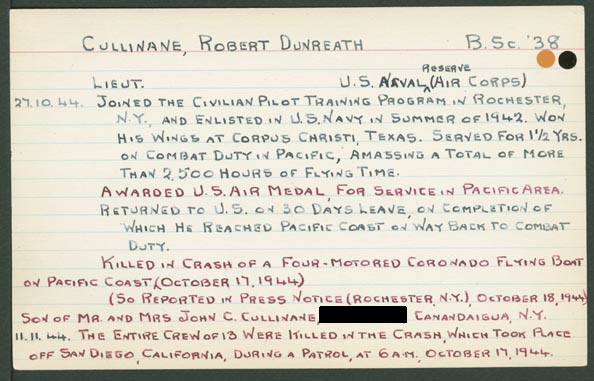 CULLINANE, ROBERT DUNREATH B.Sc. '38
LIEUT. U.S. NAVAL RESERVE (AIR CORPS)
27.10.44. JOINED THE CIVILIAN PILOT TRAINING PROGRAM IN ROCHESTER,
N.Y., AND ENLISTED IN U.S. NAVY IN SUMMER OF 1942. WON
HIS WINGS AT CORPUS CHRISTI, TEXAS. SERVED FOR 1½ YRS.
ON COMBAT DUTY IN PACIFIC, AMASSING A TOTAL OF MORE
THAN 2,500 HOURS OF FLYING TIME.
AWARDED U.S. AIR MEDAL, FOR SERVICE IN PACIFIC AREA.
RETURNED TO U.S. ON 30 DAYS LEAVE, ON COMPLETION OF
WHICH HE REACHED PACIFIC COAST ON WAY BACK TO COMBAT
DUTY.
KILLED IN CRASH OF A FOUR-MOTORED CORONADO FLYING BOAT
ON PACIFIC COAST, (OCTOBER 17, 1944)
(SO REPORTED IN PRESS NOTICE (ROCHESTER, N.Y.), OCTOBER 18, 1944)
SON OF MR. AND MRS JOHN C. CULLINANE, CANANDAIGUA, N.Y.
11.11.44. THE ENTIRE CREW OF 13 WERE KILLED IN THE CRASH, WHICH TOOK PLACE
OFF SAN DIEGO, CALIFORNIA, DURING A PATROL, AT 6 A.M. OCTOBER 17, 1944.